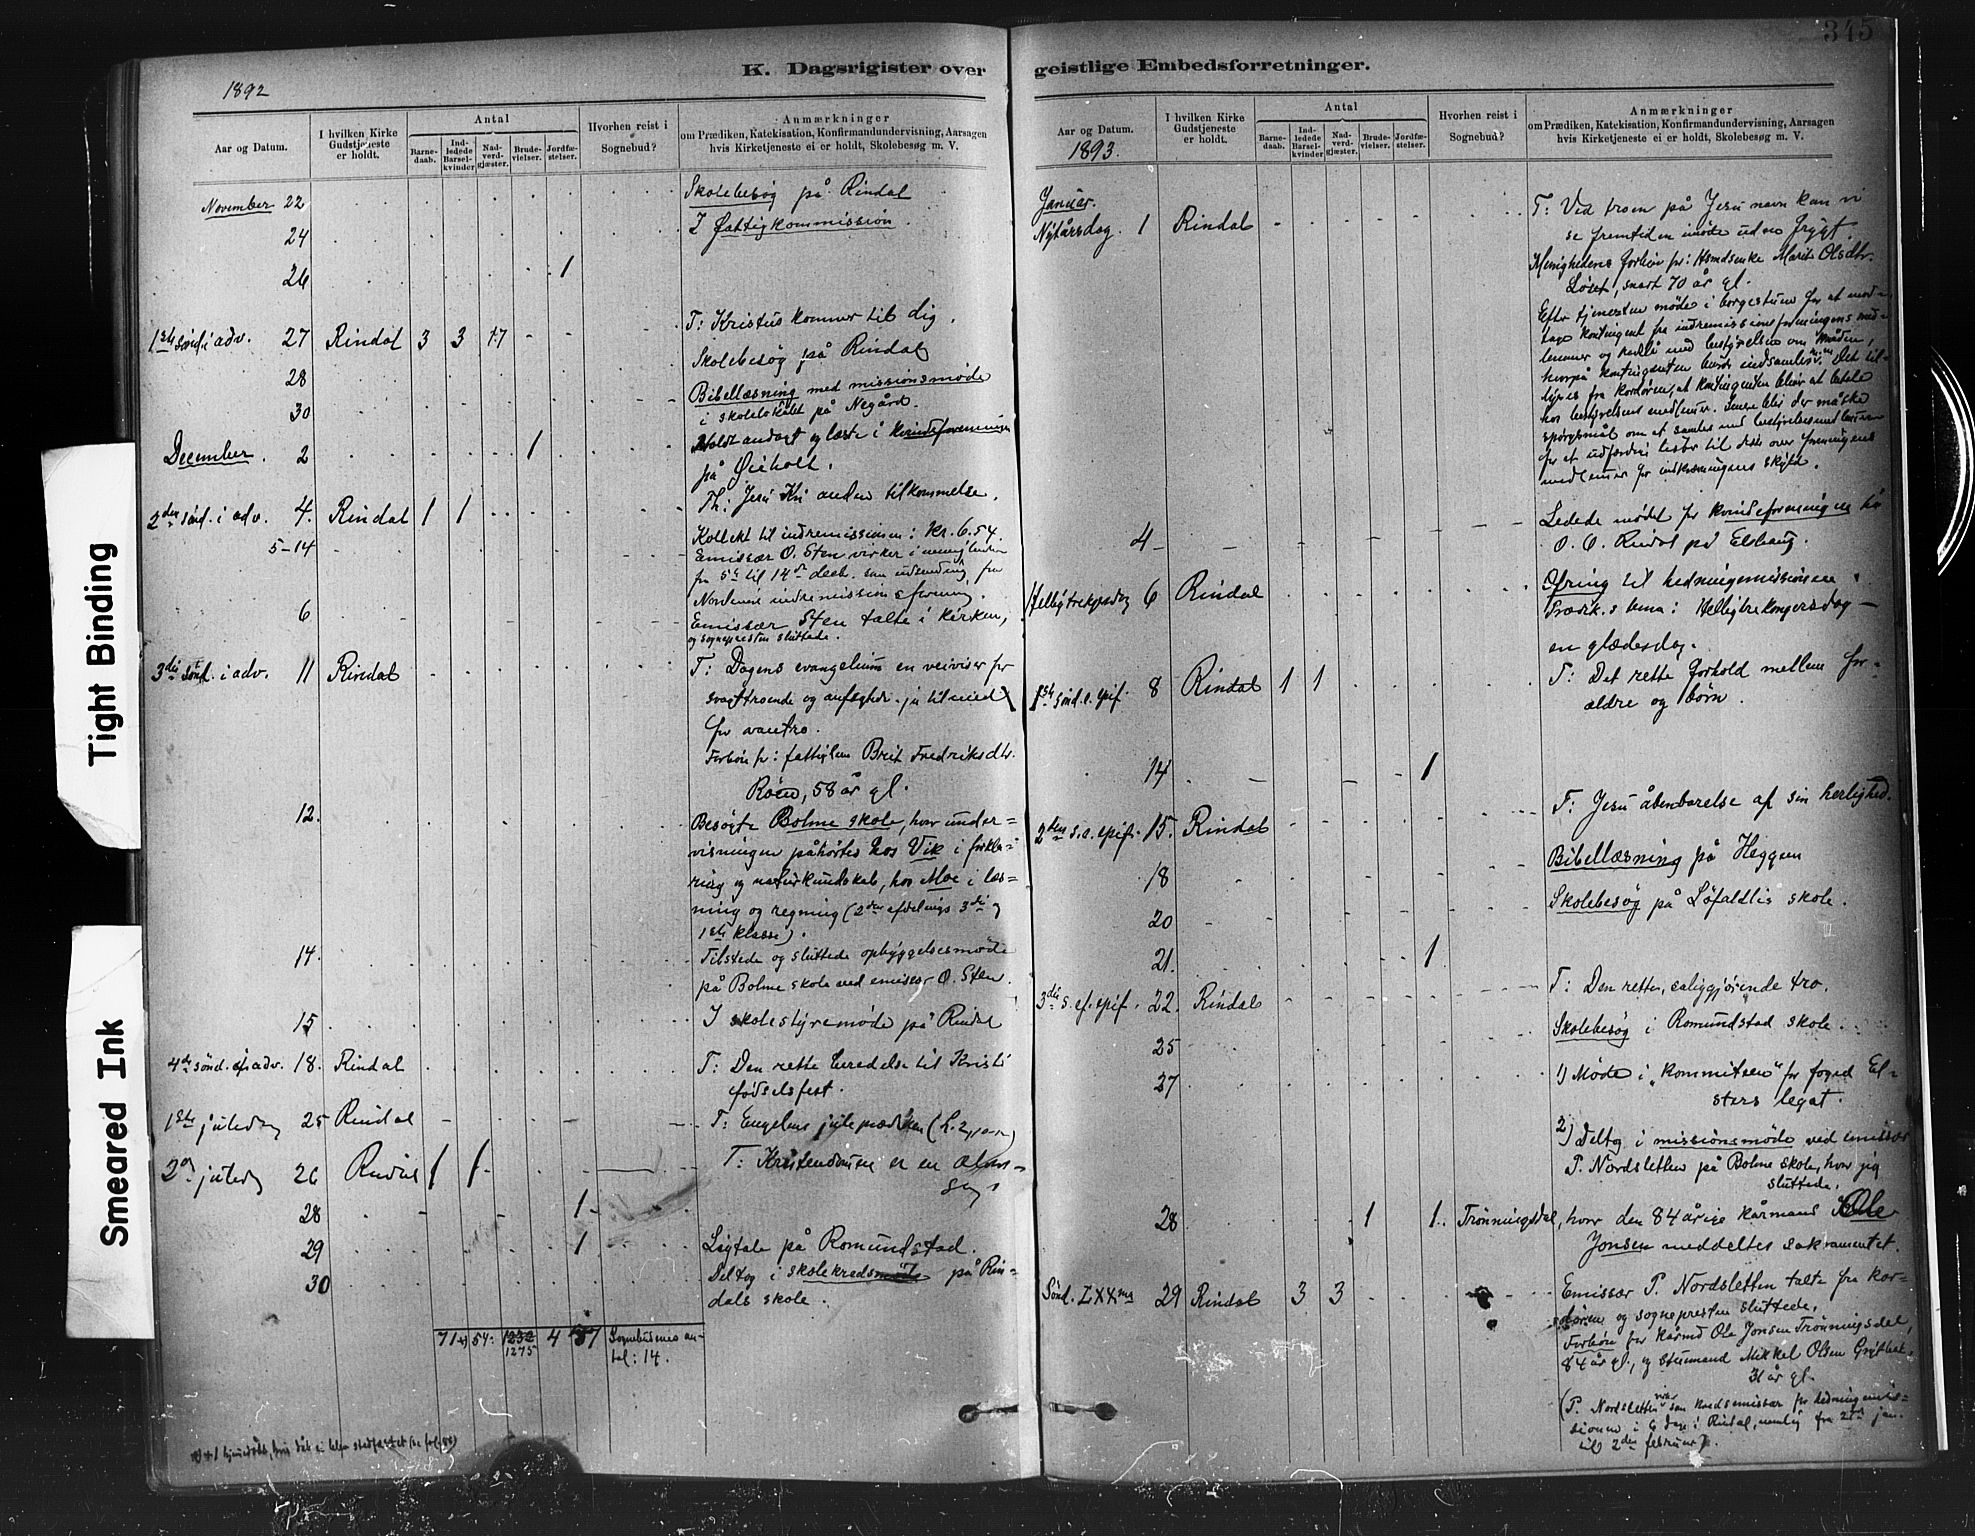 345
K. Dagsrigister over
1892
Aar og Datum.
I hvilken Kirke Gudstjeneste er holdt.
Antal
Barnedaab.
Indledede Barselkvinder
Nadverdgjæster.
Brudevielser.
Jordfæstelser.
Hvorhen reist i Sognebud?
Anmærkninger
om Prædiken, Katekisation, Konfirmandundervisning, Aarsagen
hvis Kirketjeneste ei er holdt, Skolebesøg m. V.
November 22 Skolebesøg på Rindal
24 I Fattigkommission.
26 1
1ste sønd. i adv. 27 Rindal 3 3 77 T: Kristus kommer til dig.
28 Skolebesøg på Rindal
30 Bibellæsning med missionsmøde
i skolelokalet på Negård.
December. 2 1 Holdt andagt og læste i kvindeforeningen
på Øieholt.
2den sønd. i adv. 4. Rindal 1 1 Th: Jesu Kri anden tilkommelse.
5-14 Kollekt til indremissionen: kr. 6.54.
Emissær O. Sten virker i menigheden
fra 5te til 14de decb. som udsending fra
Nordmøre indremissionsforening.
6 Emissær Sten talte i kirken,
og sognepresten sluttede.
3die sønd. i adv. 11 Rindal T: Dagens evangelium en veiviser for
svagttroende og anfægtede
for vantro.
Forbøn fr: fattiglem Brit Fredriksdtr.
Røen, 58 år gl.
12. Besøgte Bolme skole, hvor under-
visningen påhørtes hos Vik i forkla-
ring og naturkundskab, hos Moe i læs-
ning og regning (2den afdelings 3die og
1ste klasse).
14. Tilstede og sluttede opbyggelsesmøde
på Bolme skole ved emissær O. Sten.
15 I skolestyremøde på Rindal
4de sønd. i adv. 18. Rindal T: Den rette beredelse til Kristi
fødselsfest.
1ste juledag 25 Rindal T: Engelens juleprædiken (L. 2,
2den juledag 26 Rindal 1 1 T: Kristendommen er en
28 1
29 1 Ligtale på Romundstad.
30 Deltog i skolekredsmøde på Rin-
dals skole.
71 54 1232 4 37 Sognebudenes an-
1275 tal: 14.
geistlige Embedsforretninger.
Aar og Datum.
1893.
I hvilken Kirke Gudstjeneste er holdt.
Antal
Barnedaab.
Indledede Barselkvinder
Nadverdgjæster.
Brudevielser.
Jordfæstelser.
Hvorhen reist i Sognebud?
Anmærkninger
om Prædiken, Katekisation, Konfirmandundervisning, Aarsagen
hvis Kirketjeneste ei er holdt, Skolebesøg m. V.
Januar.
Nytårsdag. 1 Rindal T: Ved troen på Jesu navn kan vi
se fremtiden imøde uden frygt.
Menighedens forbøn for: Husmdsenke Marit Olsdtr.
Løset, snart 70 år gl.
Efter tjenesten møde i borgestuen for at mod-
tage kontingent fra indremissionsforeningens med-
lemmer og handle med bestyrelsen om måden,
hvorpå kontingenten burde indsamles m.m. Det til-
lyses fra kordøren, at kontingenten bliver at betale
hos bestyrelsens medlemmer. Senere blev der måske
spørgsmål om at samles med bestyrelsesmedlemmerne
for at udfærdige lister til dette over foreningens
medlemmer for indkrævningens skyld.
4 Ledede mødet for kvindeforeningen hos
O. O. Rindal på Elshaug.
Helligtrekgsdag 6 Rindal Ofring til hedningemissionen.
Prædik.s tema: Helligtrekongersdag —
en glædesdag.
1ste sønd. e. epif. 8 Rindal 1 1 T: Det rette forhold mellem for-
ældre og børn.
14 1
2den s. e. epif. 15. Rindal T: Jesu åbenbarelse af sin herlighed.
18 Bibellæsning på Heggem
20 Skolebesøg på Løfaldlis skole.
21. 1
3die s. ef. epif. 22. Rindal T: Den rette, saliggjørende tro.
25 Skolebesøg i Romundstad skole.
27 1) Møde i "kommiteen" for foged El-
sters legat.
2) Deltog i missionsmøde ved emissær
P. Nordsletten på Bolme skole, hvor jeg
sluttede.
28 1 1 Trønningsdal, hvor den 84 årige kårmand Ole
Jonsen meddeltes sakramentet.
Sønd. LXXma 29 Rindal 3 3 Emissær P. Nordsletten talte fra kor-
døren og sognepresten sluttede.
Forbøn for kårmd Ole Jonsen Trønningsdal,
84 år gl., og Stuemand Mikkel Olsen
31 år gl.
(P. Nordsletten virker som kredsemissær for hedningemis-
sionen i 6 dage i Rindal, nemlig fra 27de jan.
til 2den februar).
Tight Binding
Smeared Ink